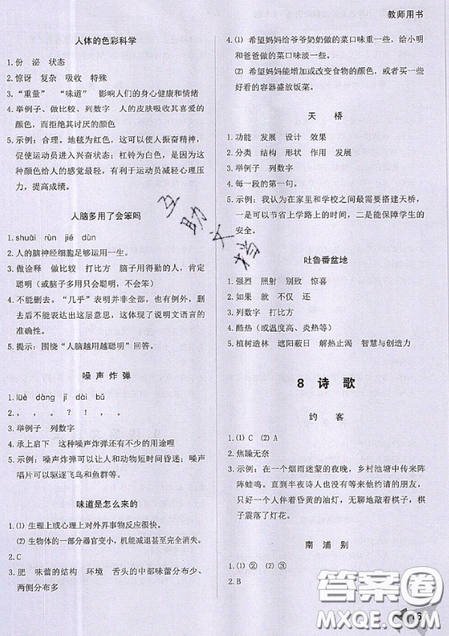 教师用书
人体的色彩科学
1. 份 泌 状态
2. 惊讶 复杂 吸收 特殊
3. “重量” “味道” 影响人们的身心健康和情绪
4. 举例子、做比较、列数字 人的皮肤吸收其喜爱的
颜色，而拒绝其讨厌的颜色
5. 示例：合理。地毯为红色，这可以使人振奋精神，
促使运动员进入兴奋状态；杠铃为白色，是因为
这种颜色给人的感觉最轻，有利于运动员减轻心理压
力，提高成绩。
人脑多用了会笨吗
1. shuāi rùn jié dùn
2. 人的脑神经细胞足够运用一生。
3. 做诠释 做比较 打比方 脑子用得勤的人，肯定
聪明（或脑子多用只会聪明，不会笨）
4. 不能删去。“几乎”表明并非全部，也有例外，删
去后不能表达出这层意思，这表现了说明文语言的
准确性。
5. 提示：围绕“人脑越用越聪明”回答。
噪声炸弹
1. lüè dàng jí dài bǔ
2. ， 。 ， ？ ， 。
3. 举例子 列数字
4. 承上启下 这种噪声炸弹还有不少的用途哩
5. 示例：噪声可以让人和动物短时间昏迷；噪声
唱片可以驱逐飞鸟和鱼群等。
味道是怎么来的
1. ⑴ 生理上或心理上对外界事物反应很快。
⑵ 生物体的一部分器官变小，机能减退甚至完全消失。
2. C
3. 肥 味蕾的结构 环境 舌头的中部味蕾少些、
两侧分布多
5. ⑴ 希望妈妈给爷爷奶奶做的菜口味重一些，给小明
和爸爸做的菜口味淡一些。
⑵ 希望妈妈能增加或改变食物的颜色，或者买一些好
看的容器盛放饭菜。
天桥
1. 功能 发展 设计 效果
2. 分类 结构 形状 作用 发展
3. 举例子 列数字
4. 每一段的第一句。
5. 示例：我认为在家里和学校之间最需要搭建天桥，
一是可以节省上学路上的时间，二是能保障学生的
安全。
吐鲁番盆地
1. 强烈 照射 别致 惊喜
2. 如果 就 不仅 还
3. 列数字 打比方
4. 酷热（或高温、炎热等）
5. 植树造林 遮阳蔽日 解热止渴 智慧与创造力
8 诗歌
约客
1. ⑴ ② ⑵ A
2. 焦躁无奈
3. 示例：在一个烟雨迷蒙的夜晚，乡村池塘中传来阵
阵蛙鸣。直到半夜诗人也没有等来他约请的朋友，
只好一个人伴着昏黄的油灯，无聊地敲着棋子，棋
子震落了灯花。
南浦别
1. ⑴ ② ⑵ ③ ⑶ ①
2. B
互助文档
答案圈
MXQE.COM